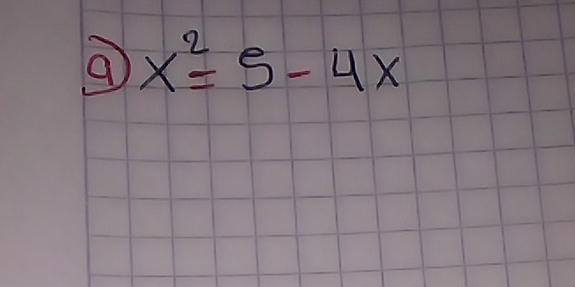 a) x² = 5 - 4x